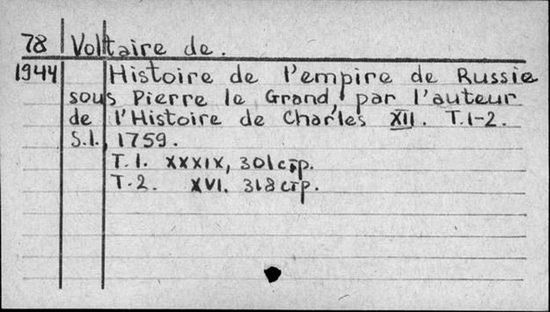 78 Voltaire de.
1944 Histoire de l'empire de Russie
sous Pierre le Grand, par l'auteur
de l'Histoire de Charles XII. T.1-2.
S.l., 1759.
T.1. XXXIX, 301 стр.
T.2. XVI. 318 стр.